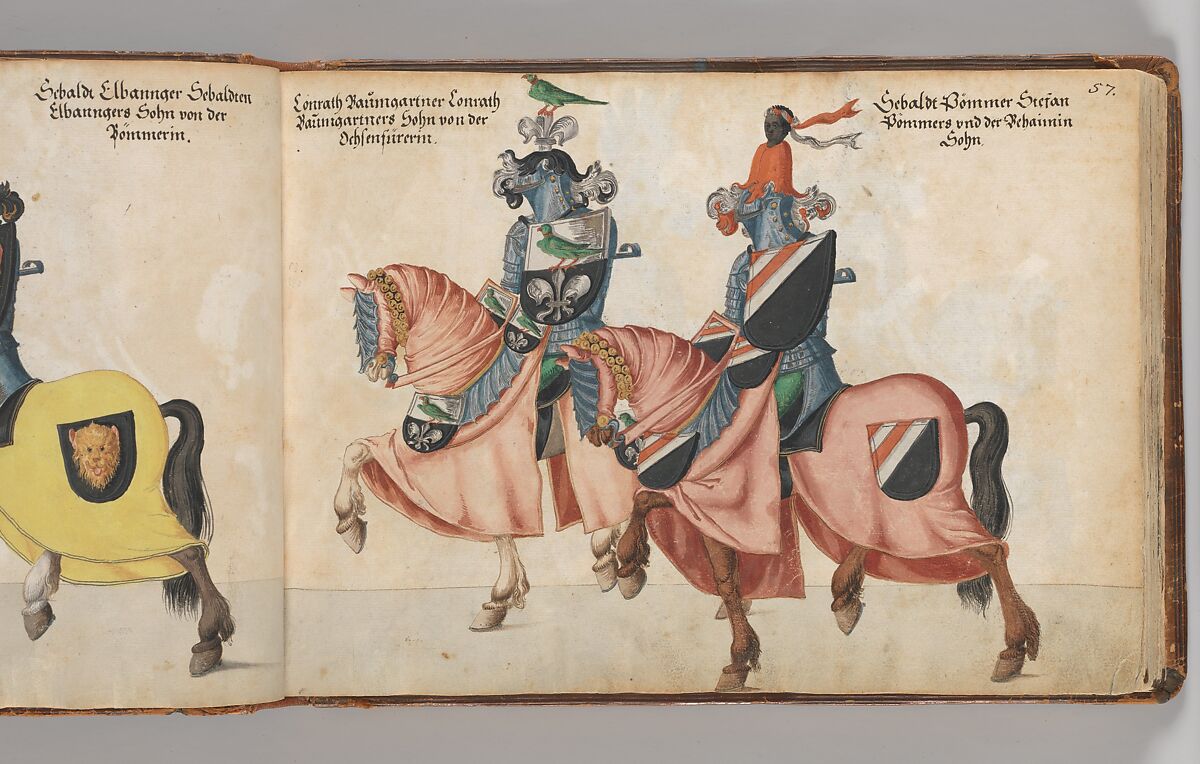 Sebaldt Elbannger Sebaldten
Elbanngers Sohn von der
Pömmerin.
Conrath Baumgartner Conrath
Baumgartners Sohn von der
Ochsenfürerin.
57.
Sebaldt Pömmer Stefan
Pömmers vnd der Behaimin
Sohn.